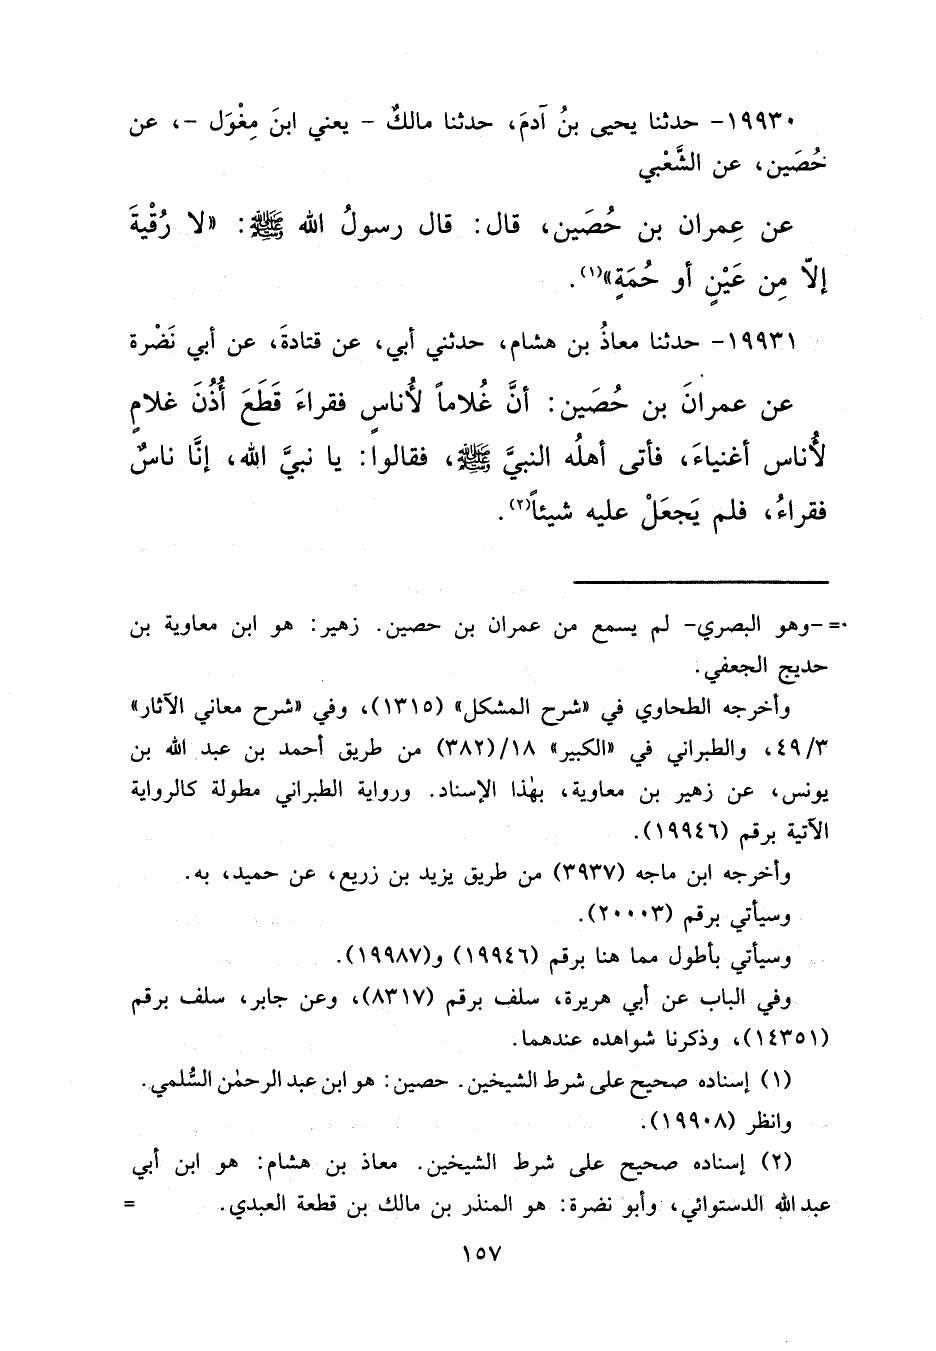 ١٩٩٣٠- حدثنا يحيى بنُ آدمَ، حدثنا مالكٌ - يعني ابنَ مِغْوَل -، عن
حُصَين، عن الشَّعْبي
عن عِمران بن حُصَين، قال: قال رسولُ الله ﷺ: «لا رُقْيةَ
إلّا مِن عَيْنٍ أو حُمَةٍ»(١).
١٩٩٣١- حدثنا معاذُ بن هشام، حدثني أبي، عن قتادةَ، عن أبي نَضْرة
عن عمرانَ بن حُصَين: أنَّ غُلاماً لأُناسٍ فقراءَ قَطَعَ أُذُنَ غلامٍ
لأُناس أغنياءَ، فأتى أهلُه النبيَّ ﷺ، فقالوا: يا نبيَّ الله، إنَّا ناسٌ
فقراءُ، فلم يَجعَلْ عليه شيئاً(٢).
=-وهو البصري- لم يسمع من عمران بن حصين. زهير: هو ابن معاوية بن
حديج الجعفي.
وأخرجه الطحاوي في «شرح المشكل» (١٣١٥)، وفي «شرح معاني الآثار»
٤٩/٣، والطبراني في «الكبير» ١٨/(٣٨٢) من طريق أحمد بن عبد الله بن
يونس، عن زهير بن معاوية، بهٰذا الإسناد. ورواية الطبراني مطولة كالرواية
الآتية برقم (١٩٩٤٦).
وأخرجه ابن ماجه (٣٩٣٧) من طريق يزيد بن زريع، عن حميد، به.
وسيأتي برقم (٢٠٠٠٣).
وسيأتي بأطول مما هنا برقم (١٩٩٤٦) و(١٩٩٨٧).
وفي الباب عن أبي هريرة، سلف برقم (٨٣١٧)، وعن جابر، سلف برقم
(١٤٣٥١)، وذكرنا شواهده عندهما.
(١) إسناده صحيح على شرط الشيخين. حصين: هو ابن عبد الرحمٰن السُّلمي.
وانظر (١٩٩٠٨).
(٢) إسناده صحيح على شرط الشيخين. معاذ بن هشام: هو ابن أبي
عبد الله الدستوائي، وأبو نضرة: هو المنذر بن مالك بن قطعة العبدي. =
١٥٧